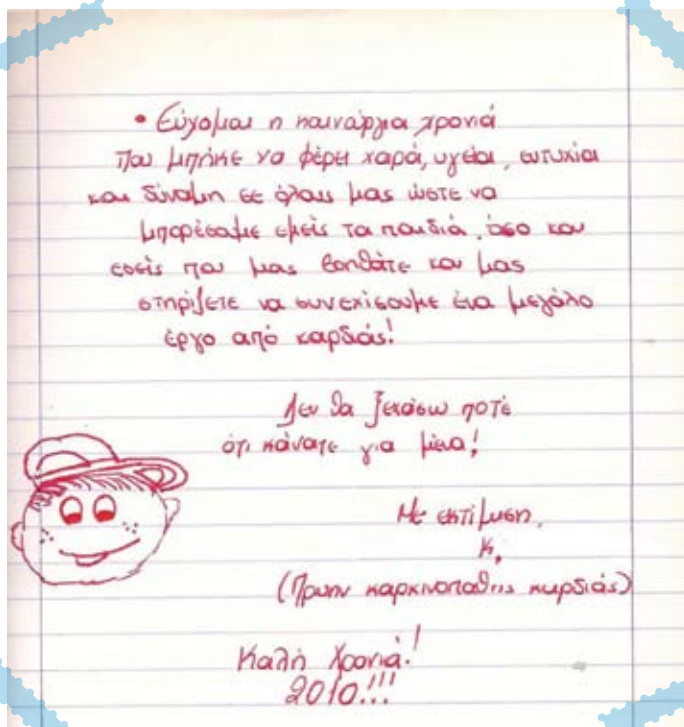 • Εύχομαι η καινούργια χρονιά
που μπήκε να φέρει χαρά, υγεία, ευτυχία
και δύναμη σε όλους μας ώστε να
μπορέσουμε εμείς τα παιδιά, όσο και
εσείς που μας βοηθάτε και μας
στηρίζετε να συνεχίσουμε ένα μεγάλο
έργο από καρδιάς!
Δεν θα ξεχάσω ποτέ
ότι κάνατε για μένα!
Με εκτίμηση,
Κ,
(Πρώην καρκινοπαθής καρδιάς)
Καλή Χρονιά!
2010!!!